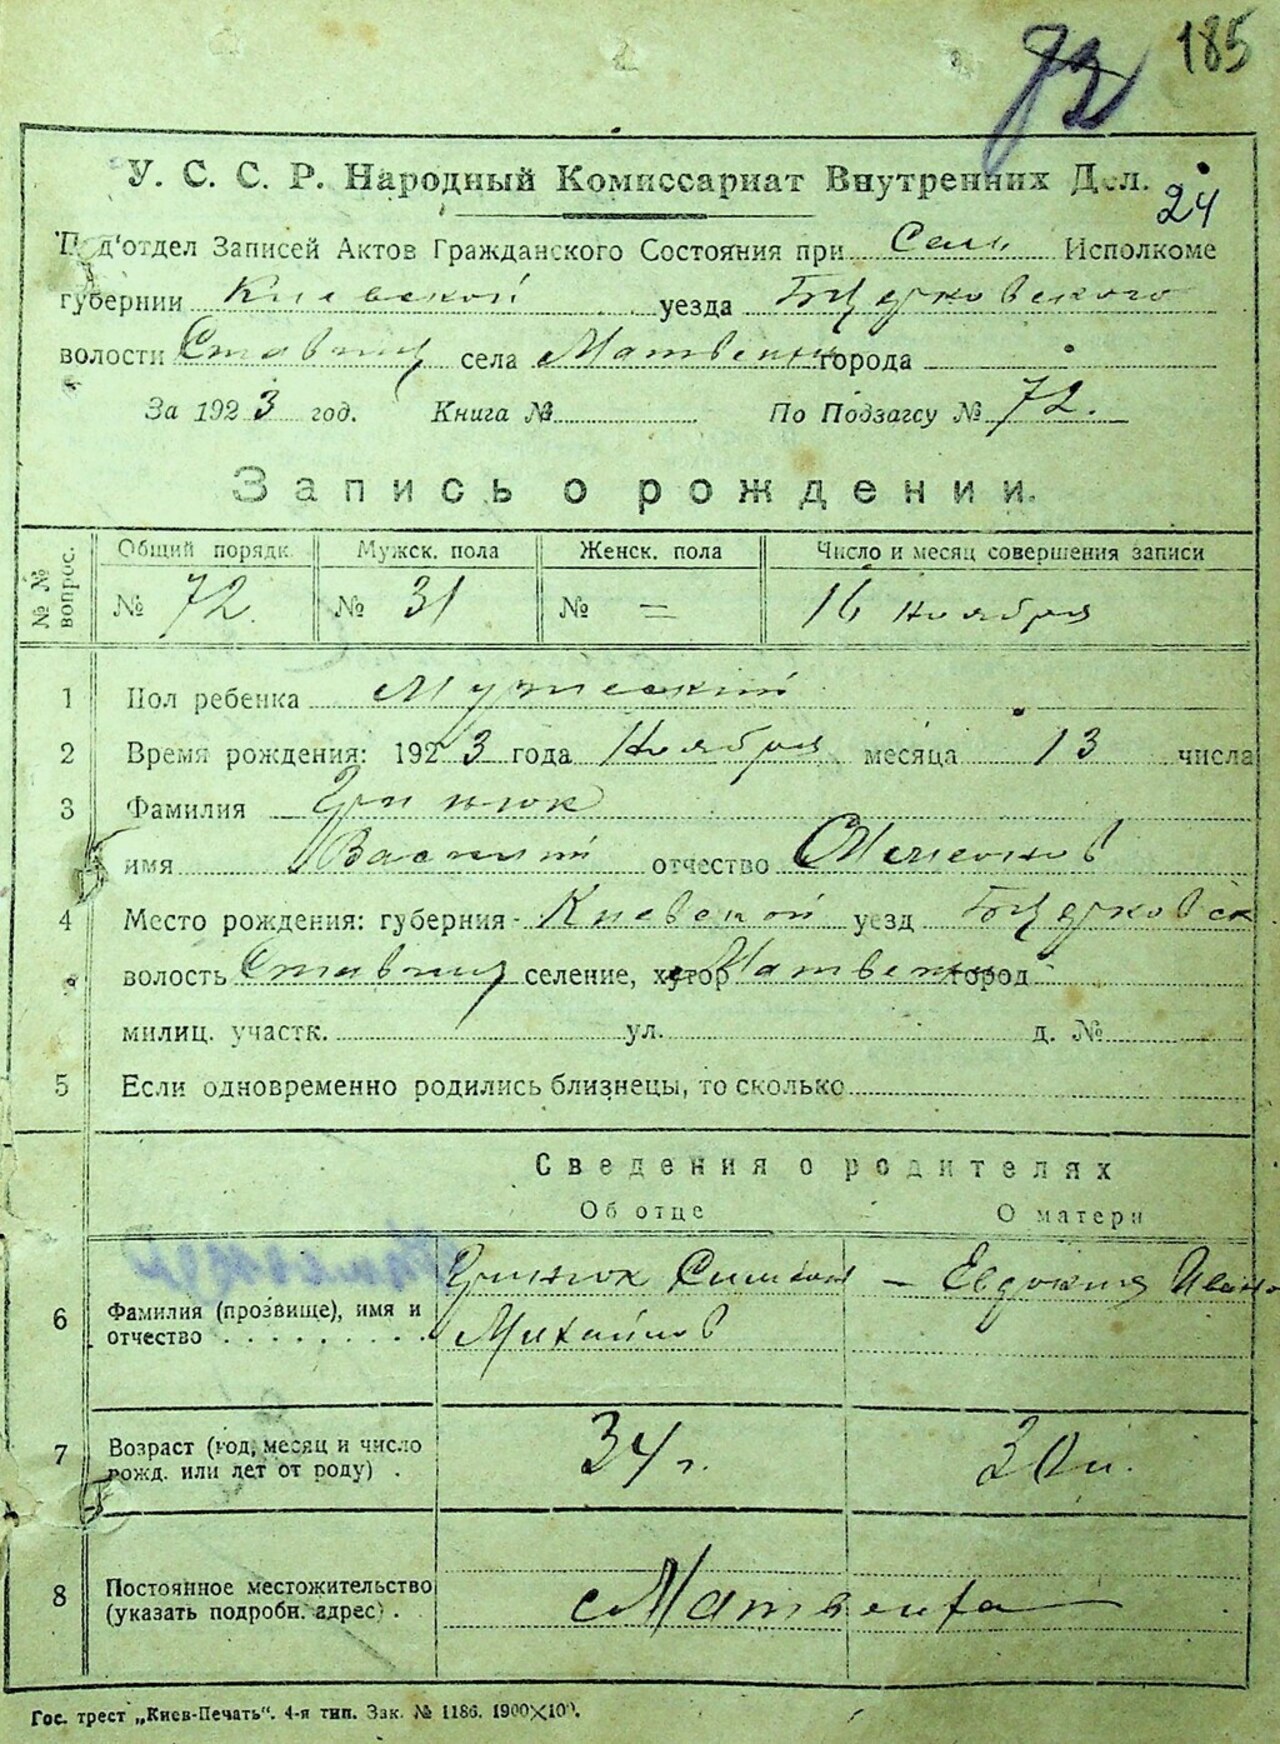 72 185
У. С. С. Р. Народный Комиссариат Внутренних Дел.
24
Под'отдел Записей Актов Гражданского Состояния при Сель Исполкоме
губернии Киевской уезда БЦерковского
волости Ставищ села Матвеихи города
За 1923 год. Книга № По Подзагсу № 72.
Запись о рождении.
№ № вопрос. Общий порядк. Мужск. пола Женск. пола Число и месяц совершения записи
№ 72. № 31 № = 16 ноября
1 Пол ребенка Мужеский
2 Время рождения: 1923 года Ноября месяца 13 числа
3 Фамилия Гринюк
имя Василий отчество Семенов
4 Место рождения: губерния - Киевской уезд БЦерковск
волость Ставищ селение, хутор Матвеихи город
милиц. участк. ул. д. №
5 Если одновременно родились близнецы, то сколько
Сведения о родителях
Об отце О матери
6 Фамилия (прозвище), имя и отчество Гринюк Симеон Михайлов — Евдокия Ивано
7 Возраст (год, месяц и число рожд. или лет от роду) . 34 г. 30 л.
8 Постоянное местожительство (указать подробн. адрес) . с Матвеиха
Гос. трест „Киев-Печать“. 4-я тип. Зак. № 1186. 1900×100.